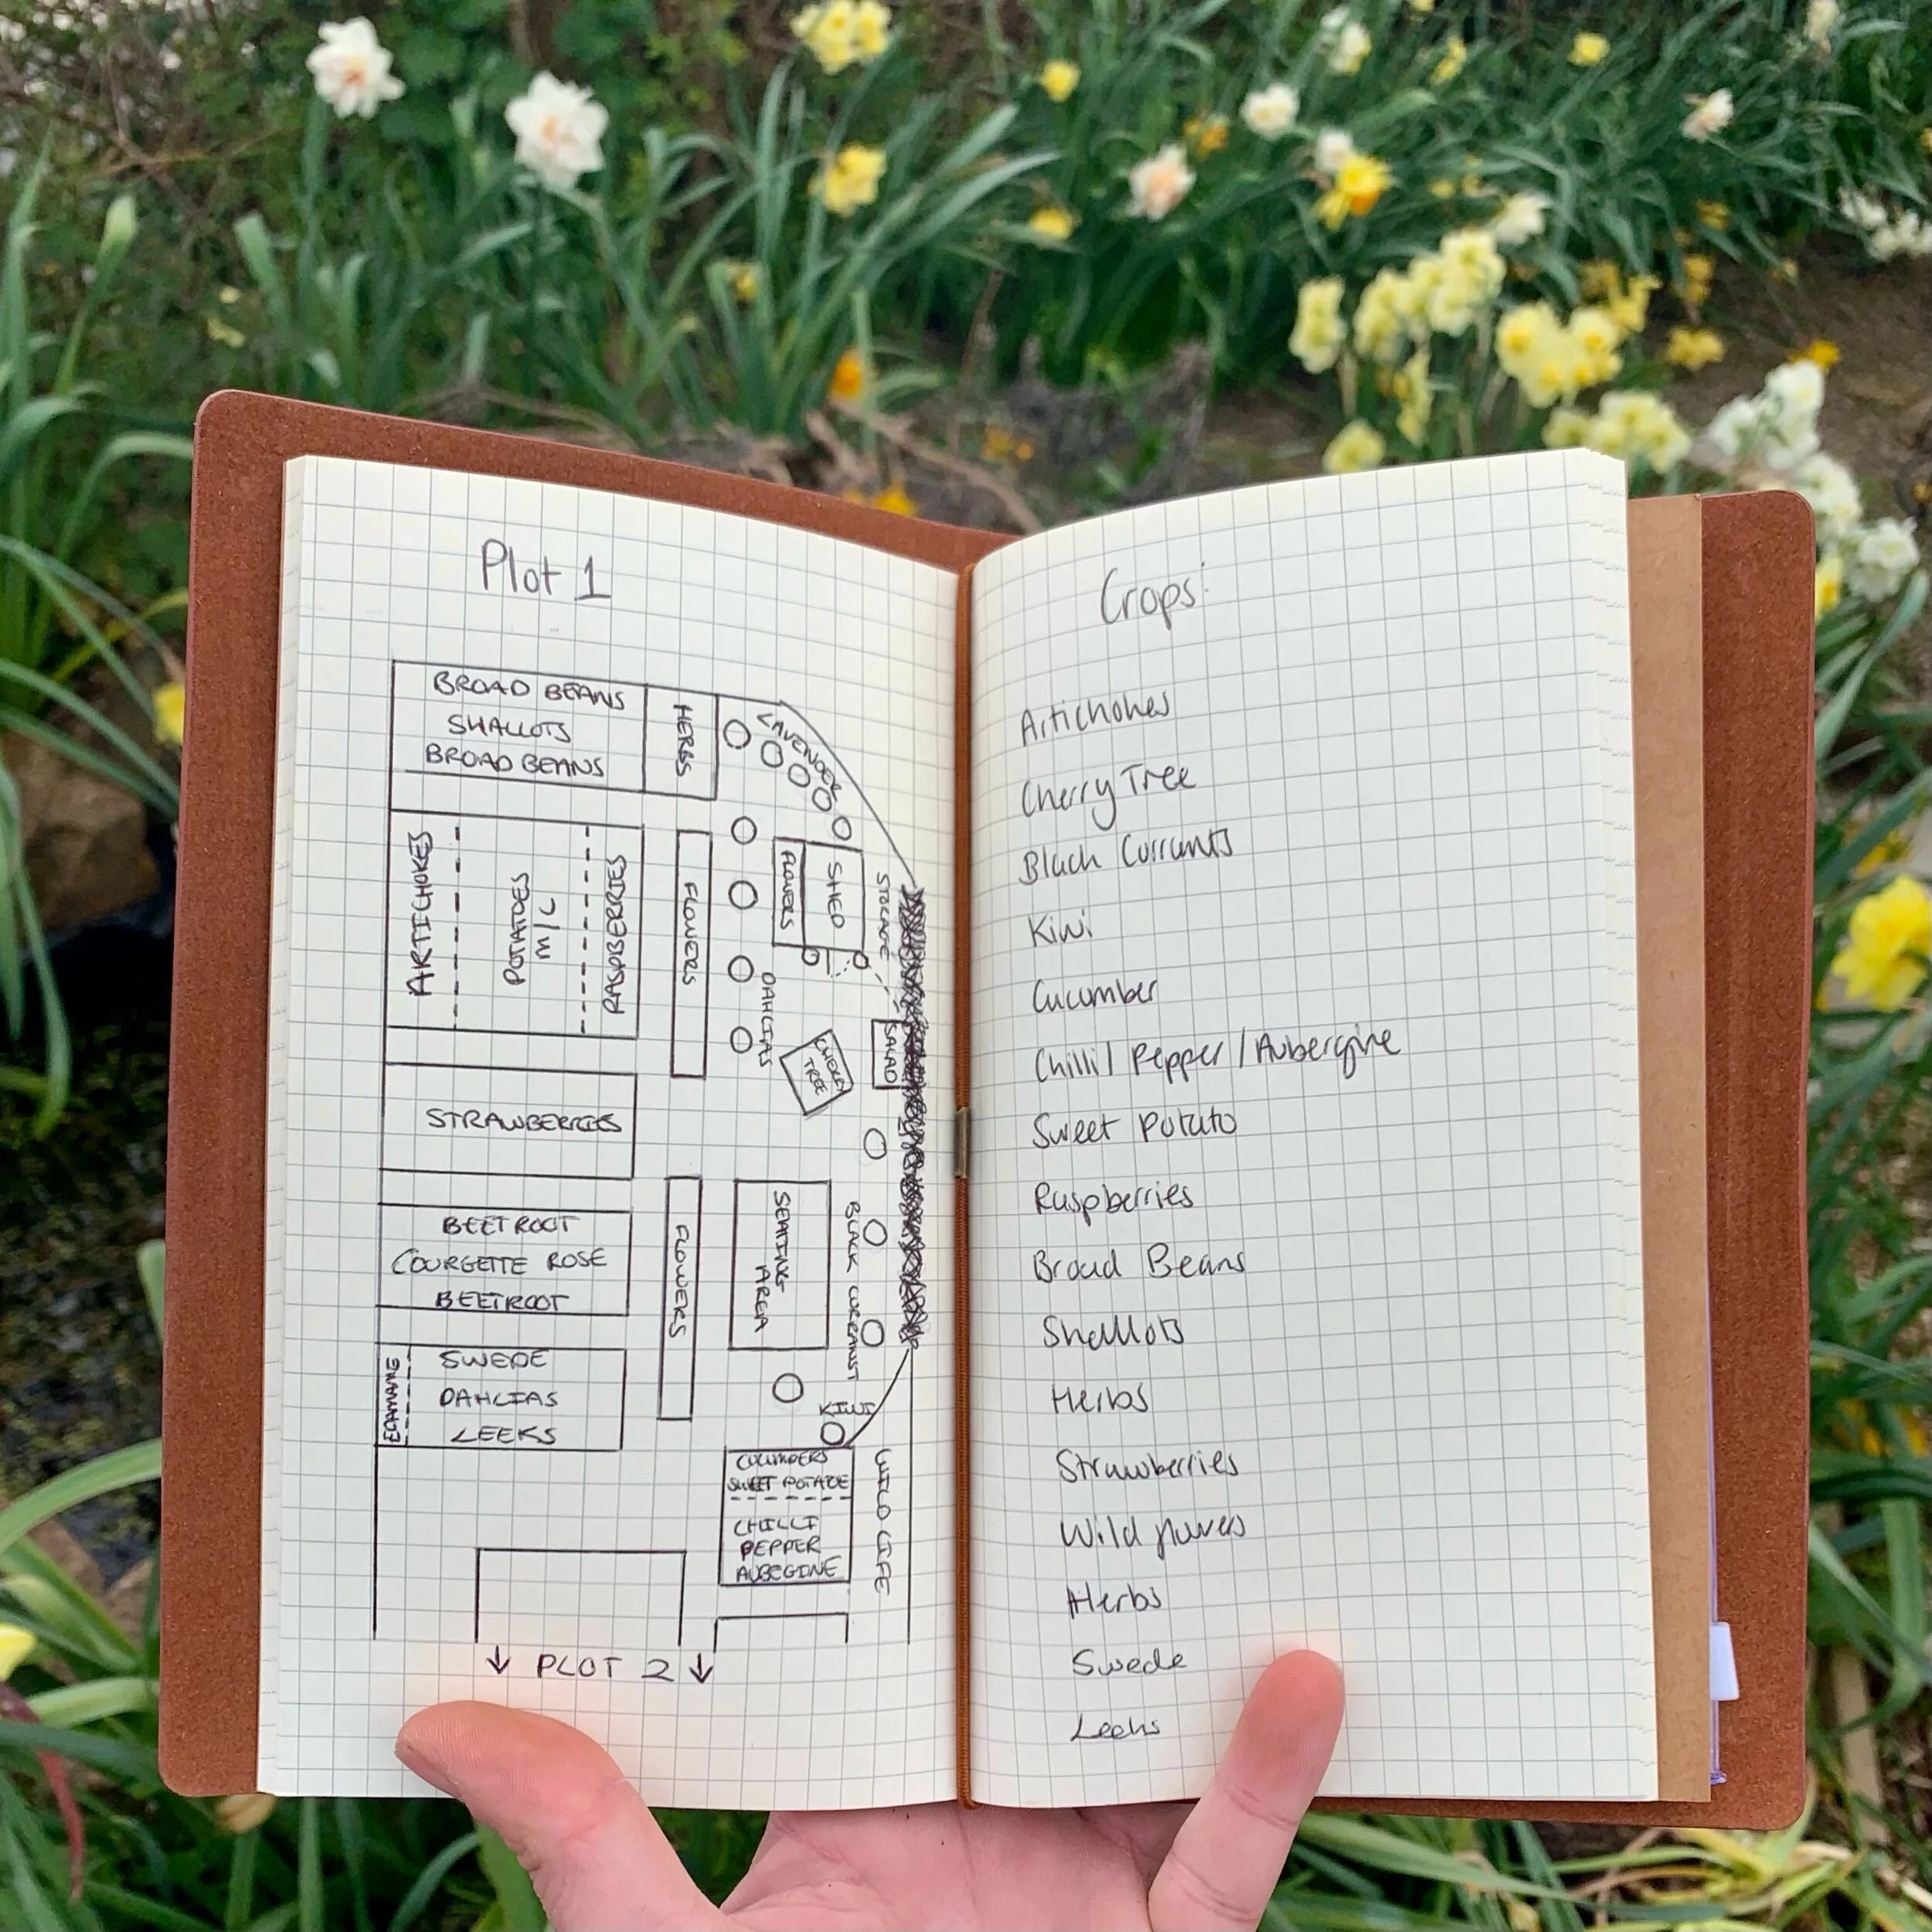 Plot 1
BROAD BEANS
SHALLOTS
BROAD BEANS
HERBS
LAVENDER
ARTICHOKES
POTATOES
M/C
RASPBERRIES
FLOWERS
FLOWERS
SHED
STORAGE
DAHLIAS
CHERRY
TREE
SALAD
STRAWBERRIES
BEETROOT
COURGETTE ROSE
BEETROOT
FLOWERS
SEATING
AREA
BLACK CURRANST
KIWI
EDAMAME
SWEDE
DAHLIAS
LEEKS
SWEET POTATOE
CHILLI
PEPPER
AUBEGINE
WILD LIFE
↓ PLOT 2 ↓
Crops:
Artichokes
Cherry Tree
Black Currants
Kiwi
Cucumber
Chilli/ Pepper/Aubergine
Sweet Potato
Raspberries
Broad Beans
Shallots
Herbs
Strawberries
Wild flowers
Herbs
Swede
Leeks